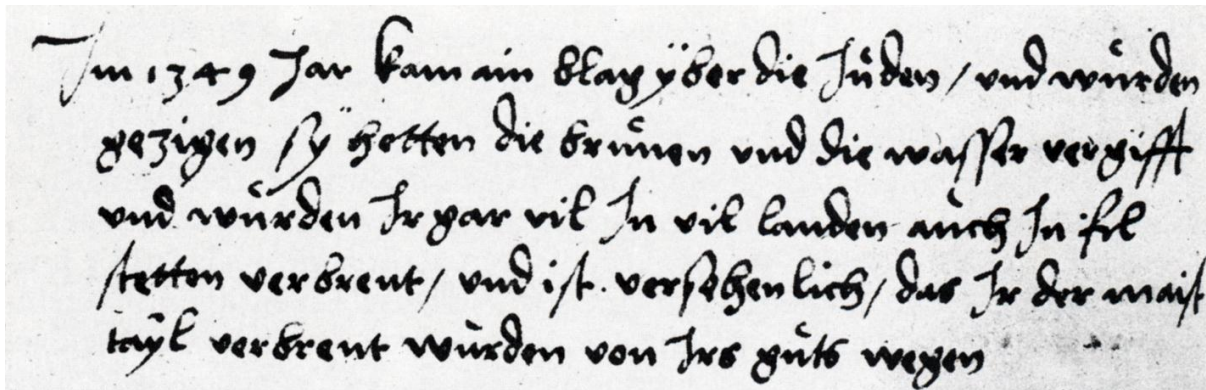 Im 1349 Jar kam ain blag ÿber die Juden / und wurden
gezigen sÿ hetten die brunen und die wasser vergifft
und wurden Ir gar vil In vil landen auch In fil
stetten verbrent / und ist . versehenlich / das Ir der maist
tayl verbrent wurden von Irs guts wegen